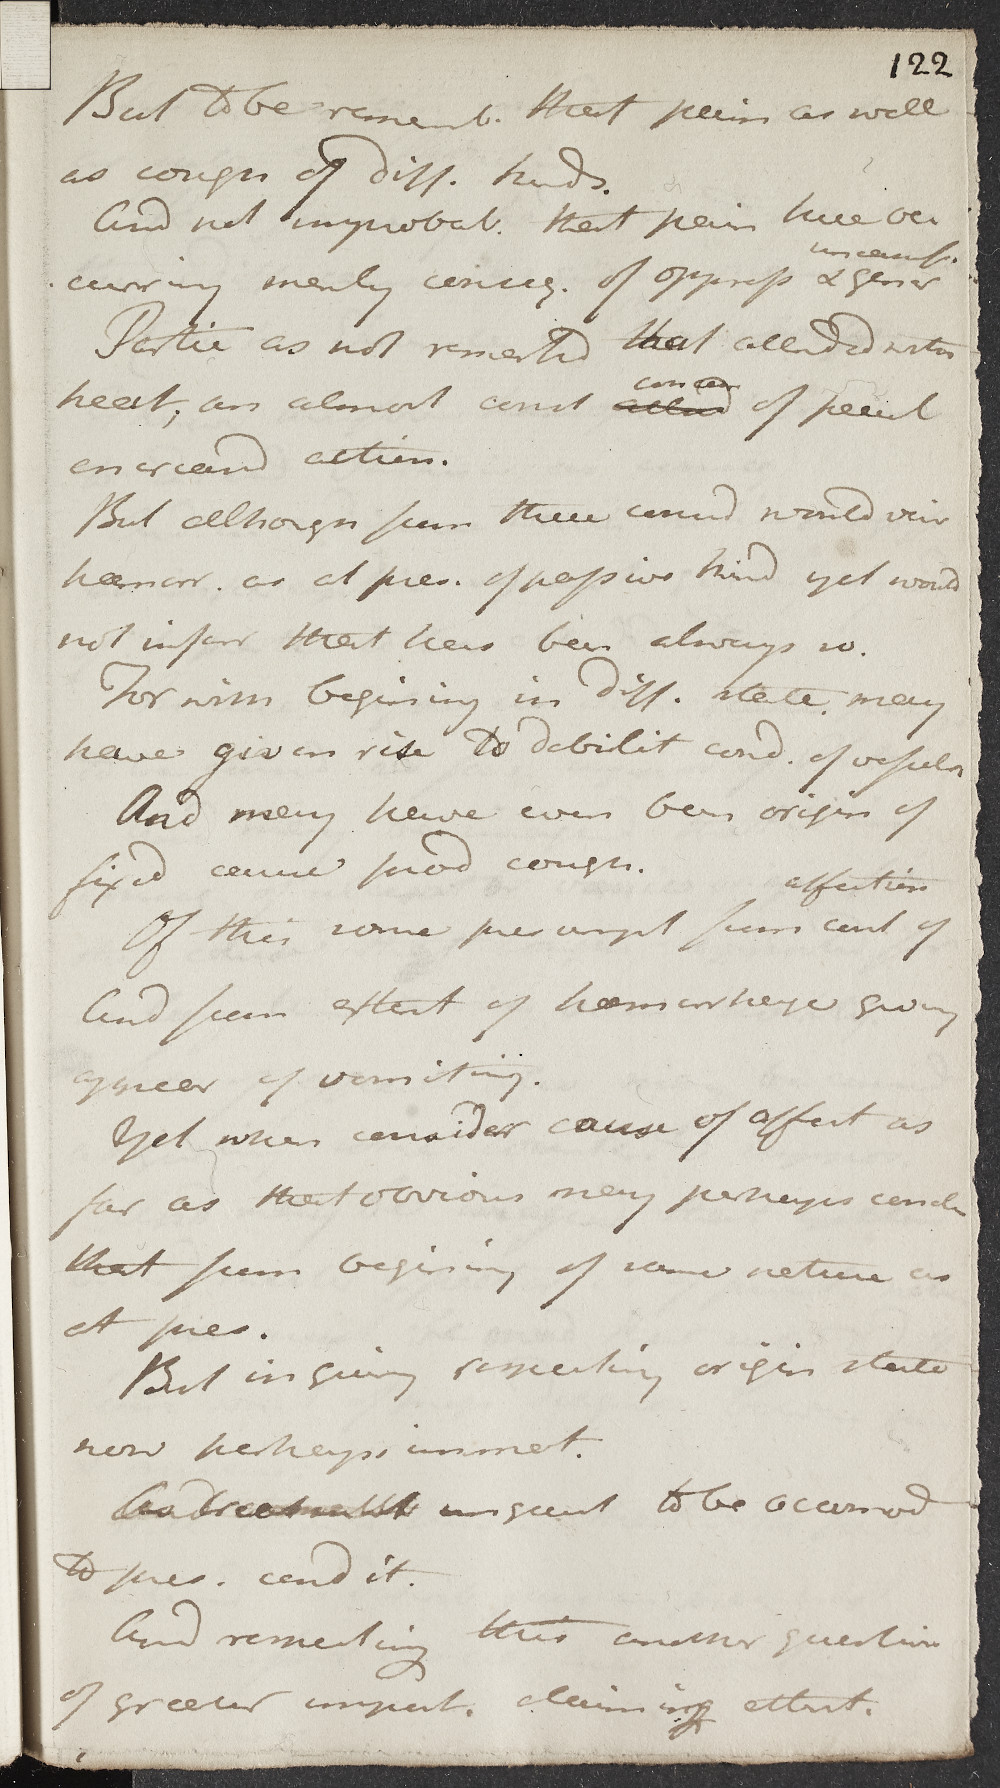 122
But to be rememb. that pain as well
as cough of diff. kinds.
And not improbab. that pain here oc
curring merely conseq. of oppress & gener
uneasi.
Partic as not remarked that attended with
heat, an almost const concom of pecul
encreasd action.
But although from these would
hæmorr. as at pres. of passive kind yet would
not infer that has been always so.
For with begining in diff. state may
have given rise to debilit cond. of vessels
And may have even been origin of
fixd cause prod cough.
affection
Of this some presumpt from of
And from extent of hæmorrhage giving
appear of vomiting.
Yet when consider cause of affect as
far as that obvious may perhaps conclu
that from begining of same nature as
at pres.
But in giving respecting origin state
now perhaps immat.
urgent to be accomod
to pres. condit.
And respecting this another question
of greater import. claiming attent.